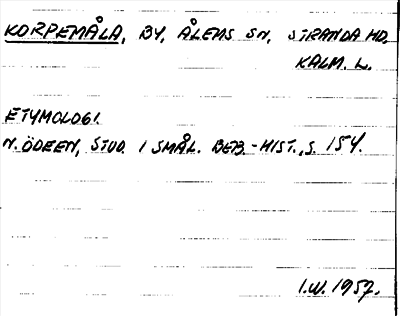 KORPEMÅLA, BY, ÅLEMS SN, STRANDA HD,
KALM. L.
ETYMOLOGI.
N. ÖDEEN, STUD. I SMÅL. BEB.-HIST., S. 154.
I.W. 1957.